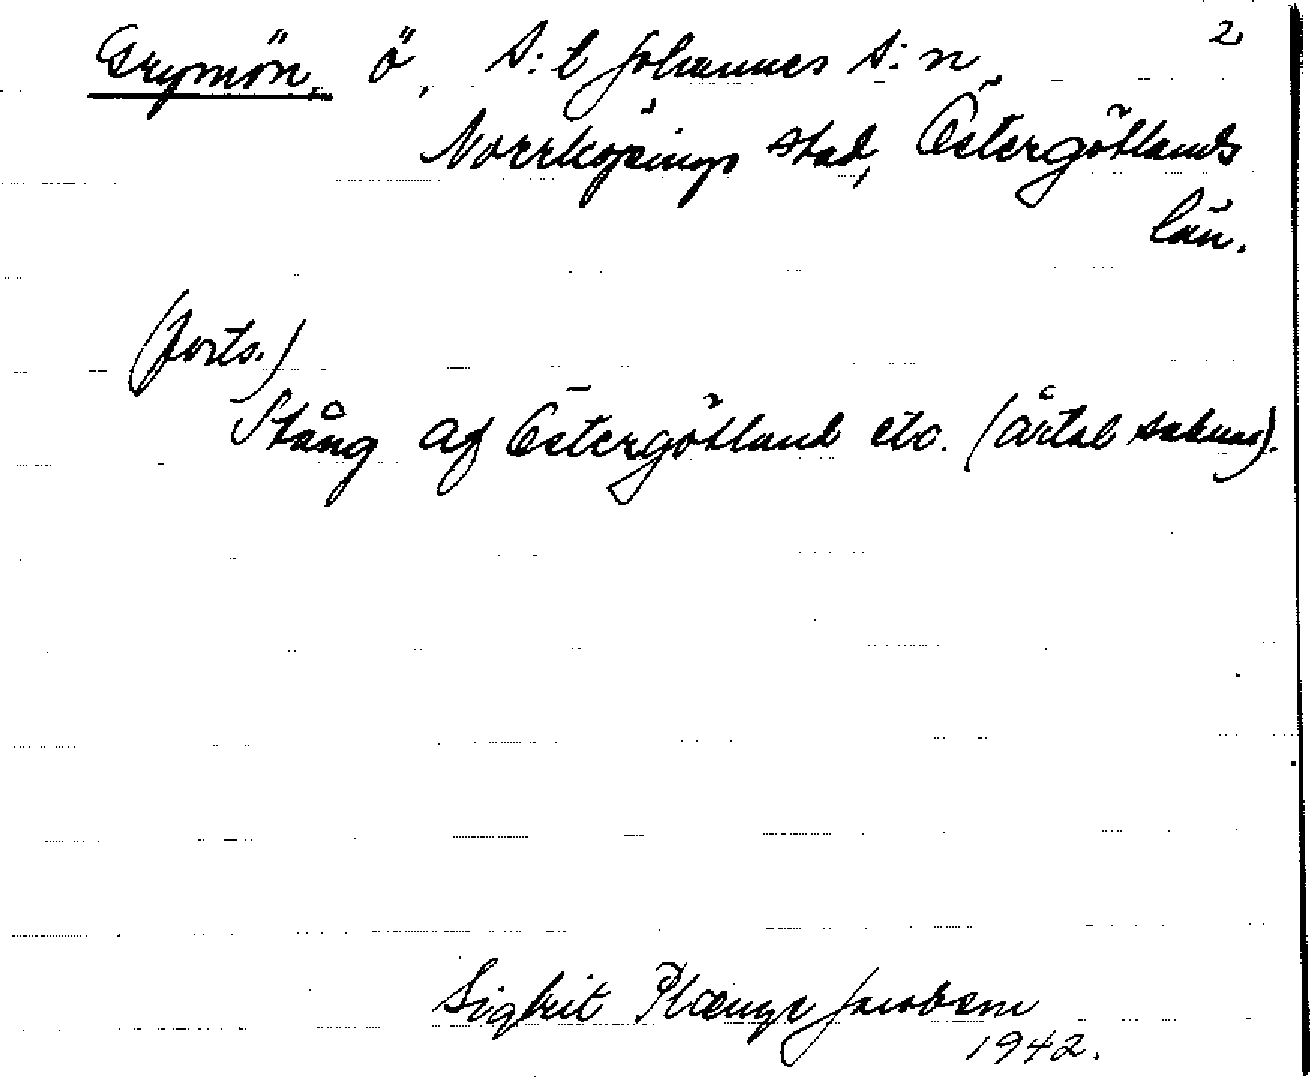 2
Grymön, ö, S:t Johannes s:n,
Norrköpings stad, Östergötlands
län.
(forts.)
Stång af Östergötland etc. (årtal saknas).
Sigbrit Plænge Jacobson
1942.